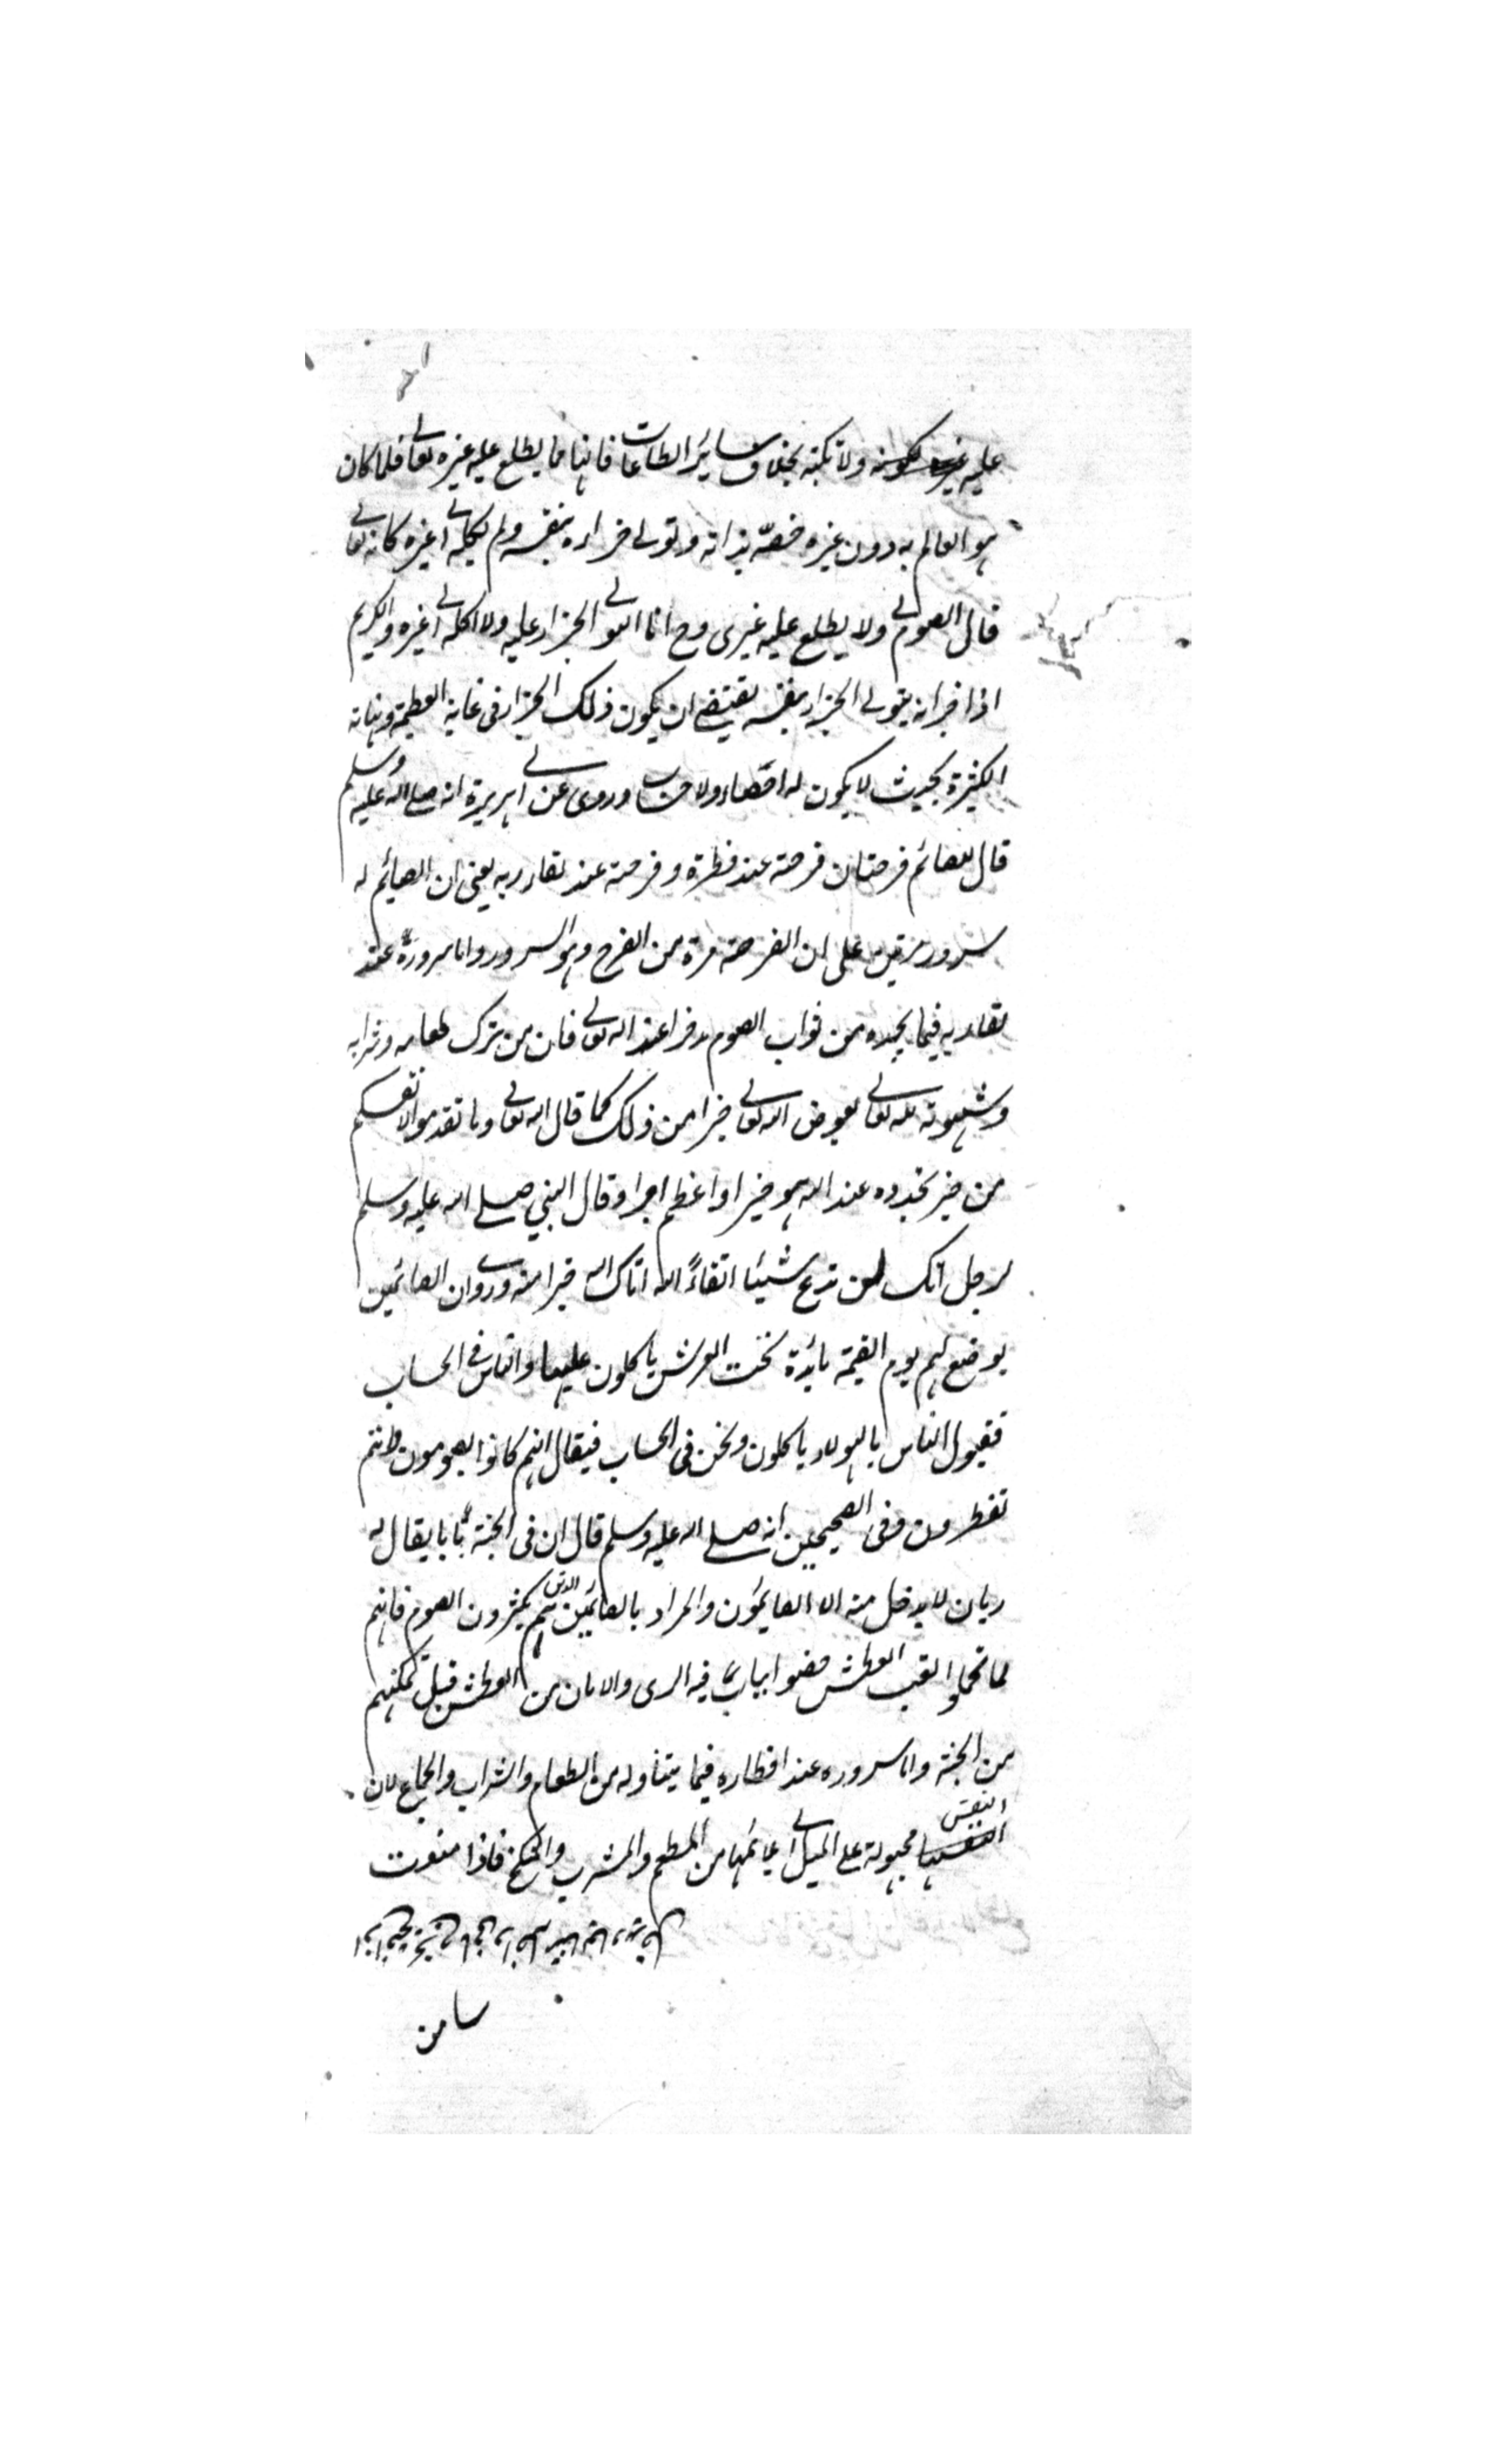 عليه غيره ولا تكتبه بخلاف سائر الطاعات فانها مما يطلع عليه غيره تعالى فلما كان
هو العالم به دون غيره خصّه بذاته وتولى جزاءه بنفسه ولم يكله الى غيره كانه تعالى
قال الصوم لى ولا يطلع عليه غيرى وح انا اتولى الجزاء عليه ولا اكله الى غيره والكريم
اذا اخبر انه يتولى الجزاء بنفسه يقتضى ان يكون ذلك الجزاء فى غاية العظمة ونهاية
الكثيرة بحيث لا يكون له احصاء ولا حساب وروى عن ابى هريرة انه صلى الله عليه وسلم
قال للصائم فرحتان فرحة عند فطره وفرحة عند لقاء ربه يعنى ان الصائم له
سرور مرتين على ان الفرحة مرة من الفرح وهو السرور واما سروره عند
لقاء ربه فيما يجده من ثواب الصوم مدخرا عند الله تعالى فان من ترك طعامه وشرابه
وشهوته لله تعالى يعوض الله تعالى خيرا من ذلك كما قال الله تعالى وما تقدموا لانفسكم
من خير تجدوه عند الله هو خيرا واعظم اجرا وقال النبي صلى الله عليه وسلم
لرجل انك لن تدع شيئا اتقاءً لله اتاك الله خيرا منه وروى ان الصائمين
يوضع لهم يوم القيمة مائدة تحت العرش ياكلون عليها والناس فى الحساب
فيقول الناس ما لهؤلاء ياكلون ونحن فى الحساب فيقال انهم كانوا يصومون وانتم
تفطرون وفى الصحيحين انه صلى الله عليه وسلم قال ان فى الجنة بابا يقال له
ريان لا يدخل منه الا الصايمون والمراد بالصائمين الذين هم يكثرون الصوم فانهم
لما تحملوا تعب العطش خصوا بباب فيه الرى والامان من العطش قبل تمكنهم
من الجنة واما سروره عند افطاره فيما يتناوله من الطعام والشراب والجماع لان
النفس
مجبولة على الميل الى ما يلائمها من المطعم والمشرب والمنكح فاذا منعت
من